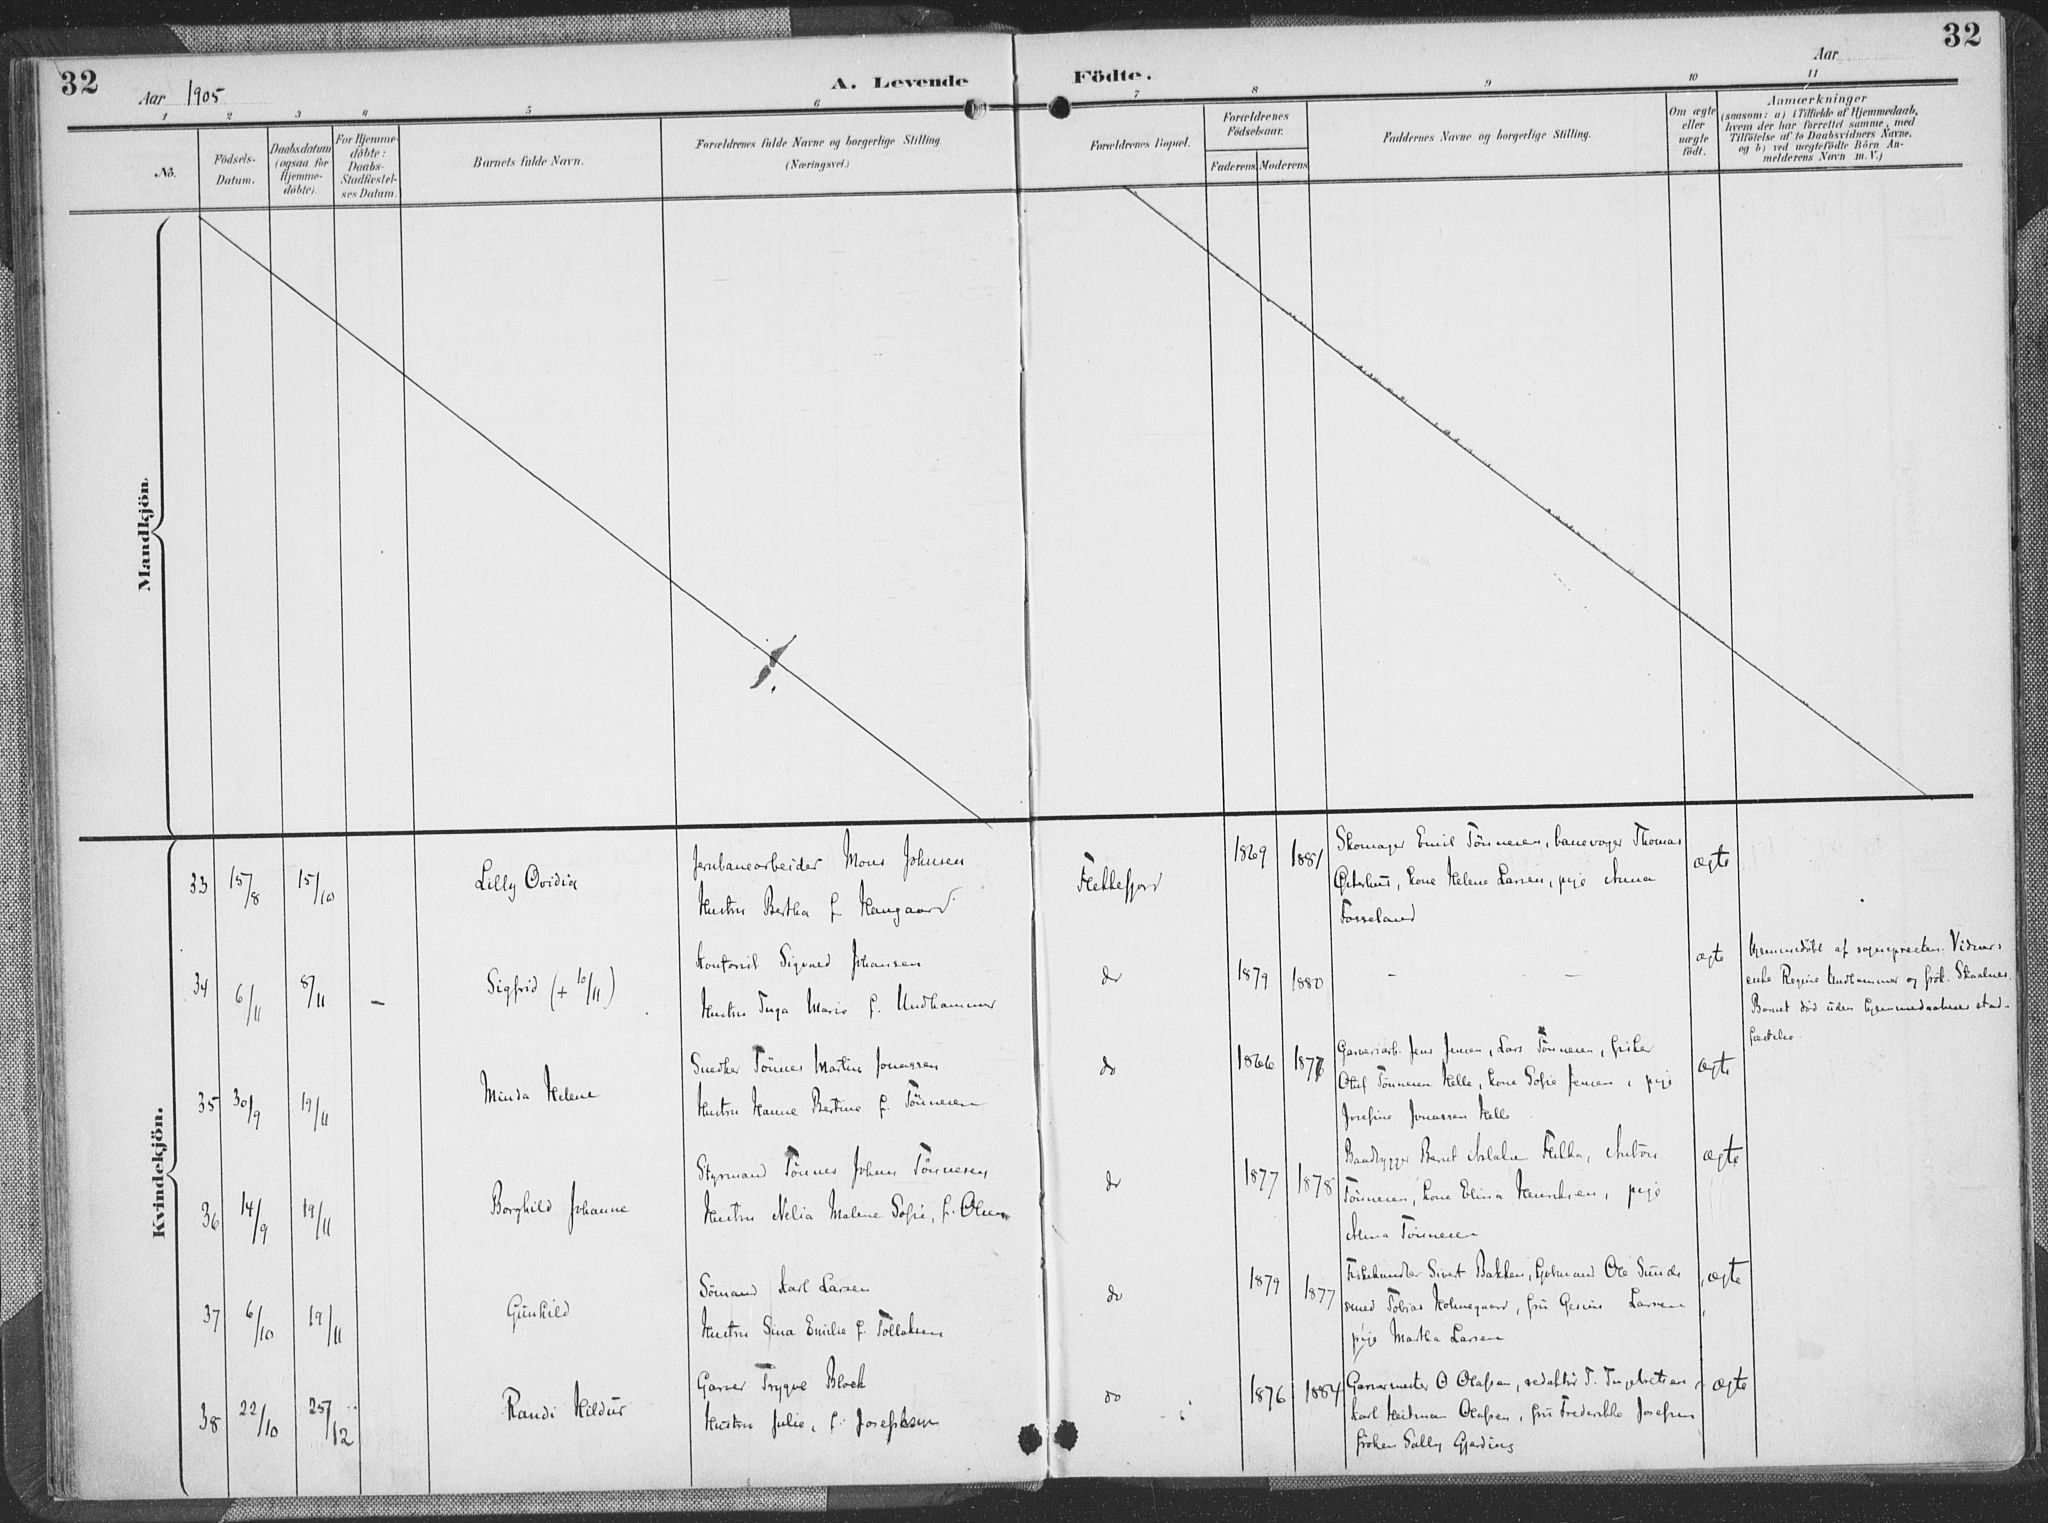 32
Aar 1905
A. Levende
Födte.
Aar
32
1
2
3
4
5
6
7
8
9
10
11
No.
Födsels-
Datum.
Daabsdatum
(ogsaa for
Hjemme-
döbte).
For Hjemme-
döbte:
Daabs-
Stadfæstel-
ses Datum.
Barnets fulde Navn.
Forældrenes fulde Navne og borgerlige Stilling.
(Næringsvei.)
Forældrenes Bopæl.
Forældrenes
Födselsaar.
Faderens
Moderens
Faddernes Navne og borgerlige Stilling.
Om ægte
eller
uægte
födt.
Anmærkninger
(saasom: a) i Tilfælde af Hjemmedaab,
hvem der har forrettet samme, med
Tilföielse af to Daabsvidners Navne.
og b) ved uægtefödte Börn An-
melderens Navn m. V.)
Mandkjön.
Kvindekjön.
33
15/8
15/10
Lilly Ovidia
Jernbanearbeider Mons Johnsen
Hustru Bertha f. Haugaard
Flekkefjord
1869
1881
Skomager Emil Tönnesen, banevoger Thomas
Österhus, kone Helene Larsen, pige Anna
Fosseland
ægte
34
6/11
8/11
–
Sigfrid (+ 10/11)
Kontorist Sigvard Johansen
Hustru Inga Marie f. Undhammer
do
1879
1880
–
–
ægte
Hjemmedöbt af sognepresten. Vidner:
enke Regine Undhammer og frök. Skaalnes.
Barnet död uden hjemmedaabens stad-
fæstelse.
35
30/9
19/11
Minda Helene
Snedker Tönnes Martin Jonassen
Hustru Hanne Bertine f. Tönnesen
do
1866
1877
Garveriarb. Jens Jensen, Lars Tönnesen, fisker
Oluf Tönnesen Helle, kone Sofie Jensen, pige
Josefine Jonassen Helle
ægte
36
14/9
19/11
Borghild Johanne
Styrmand Tönnes Johan Tönnesen
Hustru Nelia Malene Sofie, f. Olsen
do
1877
1878
Baadbygger Bernt Aslaksen, Anton
Tönnesen, kone Elina Henriksen, pige
Alma Tönnesen
ægte
37
6/10
19/11
Gunhild
Sömand Karl Larsen
Hustru Sina Emilie f. Tollaksen
do
1879
1877
Fiskehandler Sivert Bakken, Ole Sunde
smed Tobias Holmegaard, fru Gesine Larsen
pige Martha Larsen
ægte
38
22/10
25/12
Randi Hildur
Garver Trygve Block
Hustru Julie, f. Josephsen
do
1876
1884
Garvermester O Olafsen, redaktör T. Ingebretsen
Karl Heitman Olafsen, fru Frederikke Josefsen
fröken Sally Gjerding
ægte